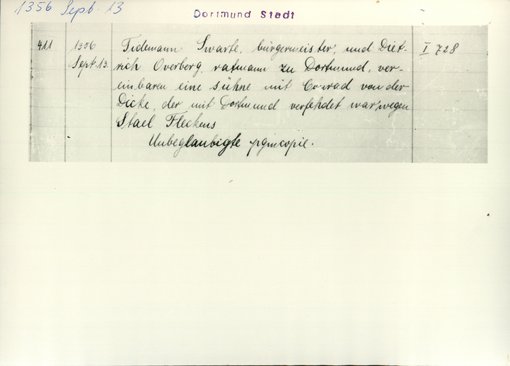 1356 Sept. 13
Dortmund Stadt
411 1356 Tidemann Swarte, bürgermeister, und Diet-
Sept. 13. rich Overberg, ratmann zu Dortmund, ver-
einbaren eine sühne mit Conrad von der
Dicke, der mit Dortmund verfehdet war wegen
Stael Fleckens
Unbeglaubigte pgmcopie.
I 728